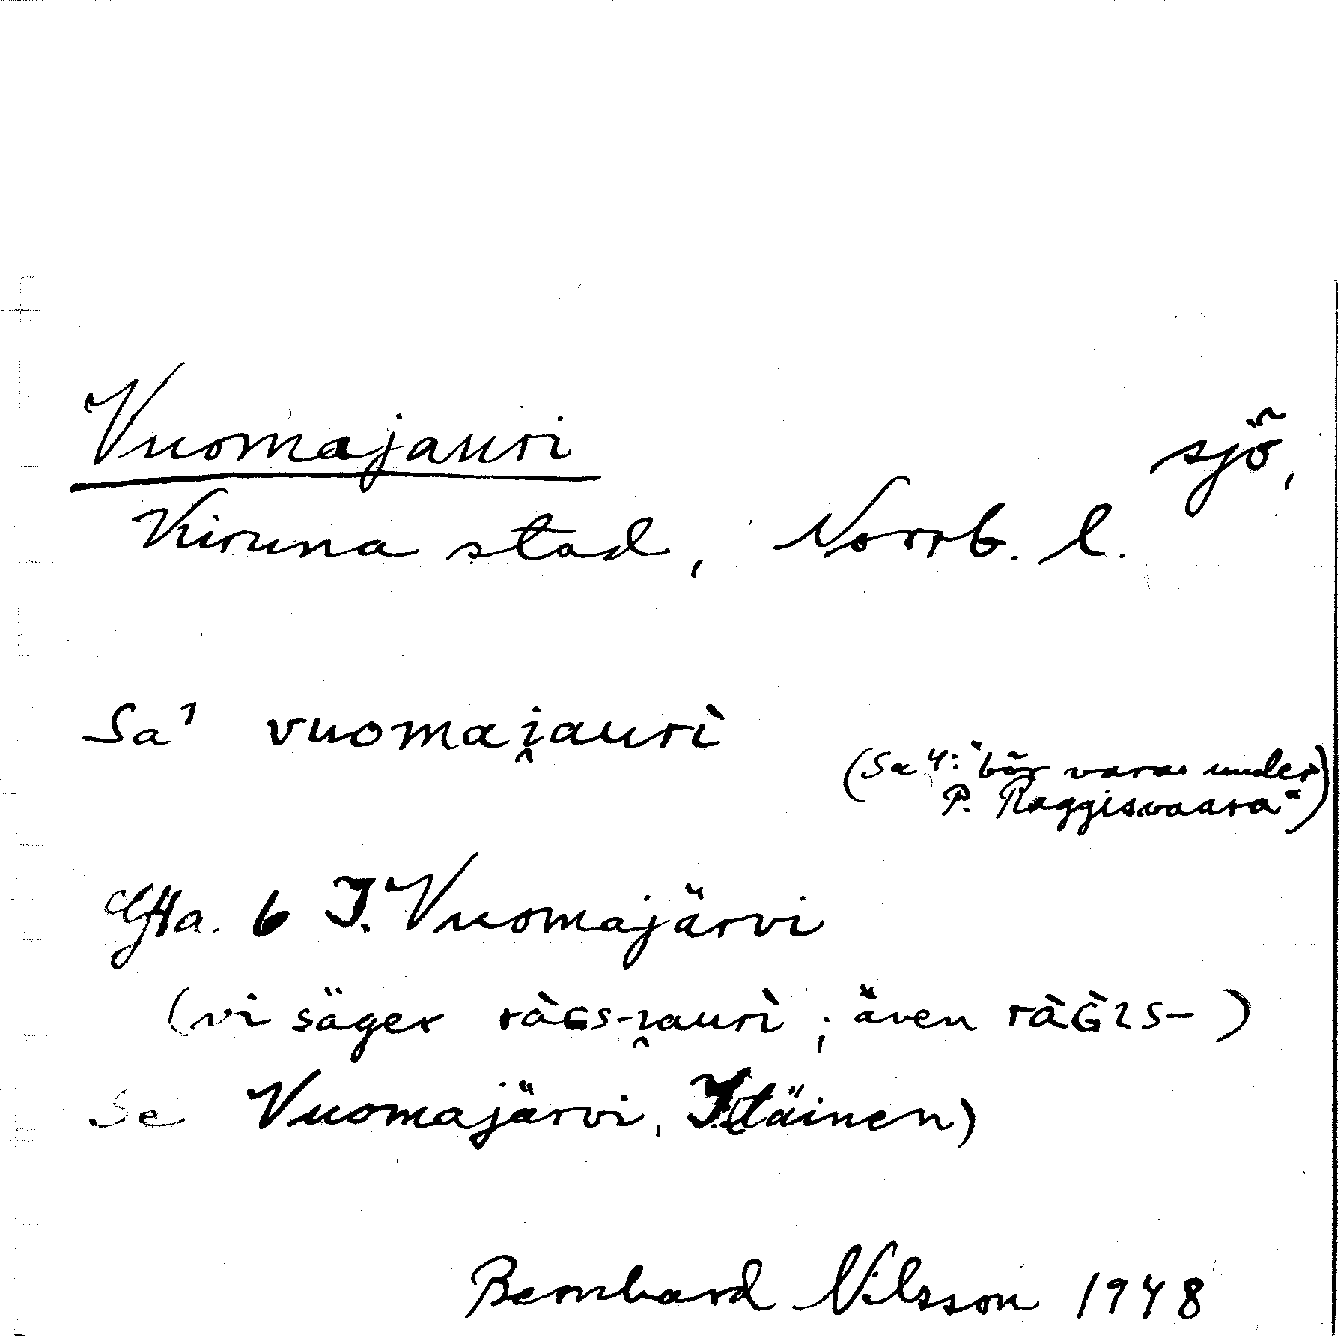 Vuomajauri sjö,
Kiruna stad, Norrb. l.
Sa¹ vuomai̯aurì
(Sa 4: "bör vara under
P. Raggisvaara")
Gfta. 6 I. Vuomajärvi
(vi säger ràɢs-i̯aurì ; även ràɢ̀ıs- )
Se Vuomajärvi, Itäinen)
Bernhard Nilsson 1948